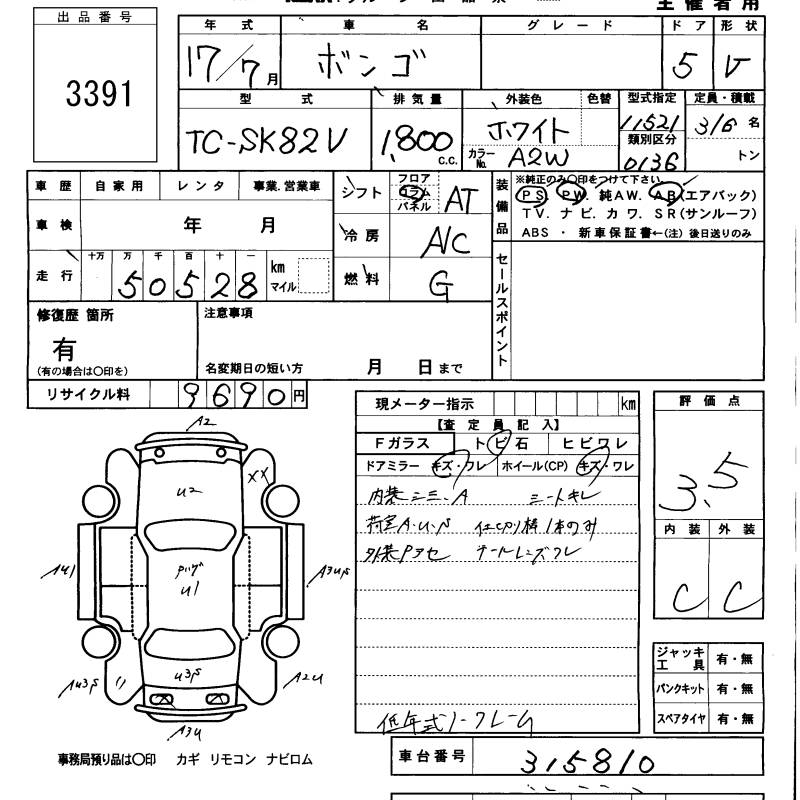 主催者用
出品番号
3391
年式 車名 グレード ドア 形状
17/7月 ボンゴ 5 V
型式 排気量 外装色 色替 型式指定 定員・積載
TC-SK82V 1,800 c.c. ホワイト 11521 3/6 名
カラーNo. A2W 類別区分 0136 トン
車歴 自家用 レンタ 事業.営業車
車検 年 月
走行 十万 万 千 百 十 一
50528 km マイル
シフト フロア コラム パネル AT
冷房 A/C
燃料 G
装備品
※純正のみ〇印をつけて下さい
PS. PW. 純AW. AB(エアバック)
TV. ナビ. カワ. SR(サンルーフ)
ABS ・ 新車保証書←(注) 後日送りのみ
セールスポイント
修復歴 箇所
有
(有の場合は〇印を)
注意事項
名変期日の短い方 月 日まで
リサイクル料 9690円
現メーター指示 km
【査定員記入】
Fガラス トビ石 ヒビワレ
ドアミラー キズ・ワレ ホイール(CP) キズ・ワレ
内装シミ、A シートキレ
荷室A・U・S 仕切り棒1本のみ
外装Pアセ
低年式ノークレーム
評価点
3.5
内装 外装
C C
ジャッキ工具 有・無
パンクキット 有・無
スペアタイヤ 有・無
A2
U2
XX
AU1
U1
A3US
U3S
AU3S
A2U
A3U
事務局預り品は〇印 カギ リモコン ナビロム
車台番号 315810